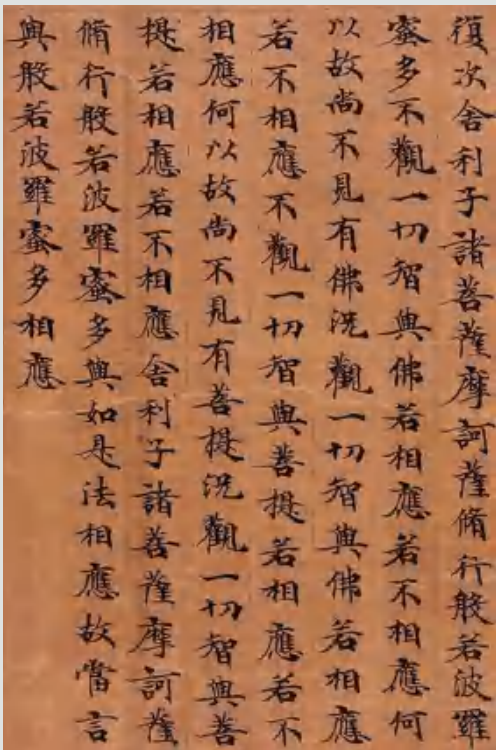 復次舍利子諸菩薩摩訶薩脩行般若波羅
蜜多不觀一切智與佛若相應若不相應何
以故尚不見有佛況觀一切智與佛若相應
若不相應不觀一切智與菩提若相應若不
相應何以故尚不見有菩提況觀一切智與菩
提若相應若不相應舍利子諸菩薩摩訶薩
脩行般若波羅蜜多與如是法相應故當言
與般若波羅蜜多相應